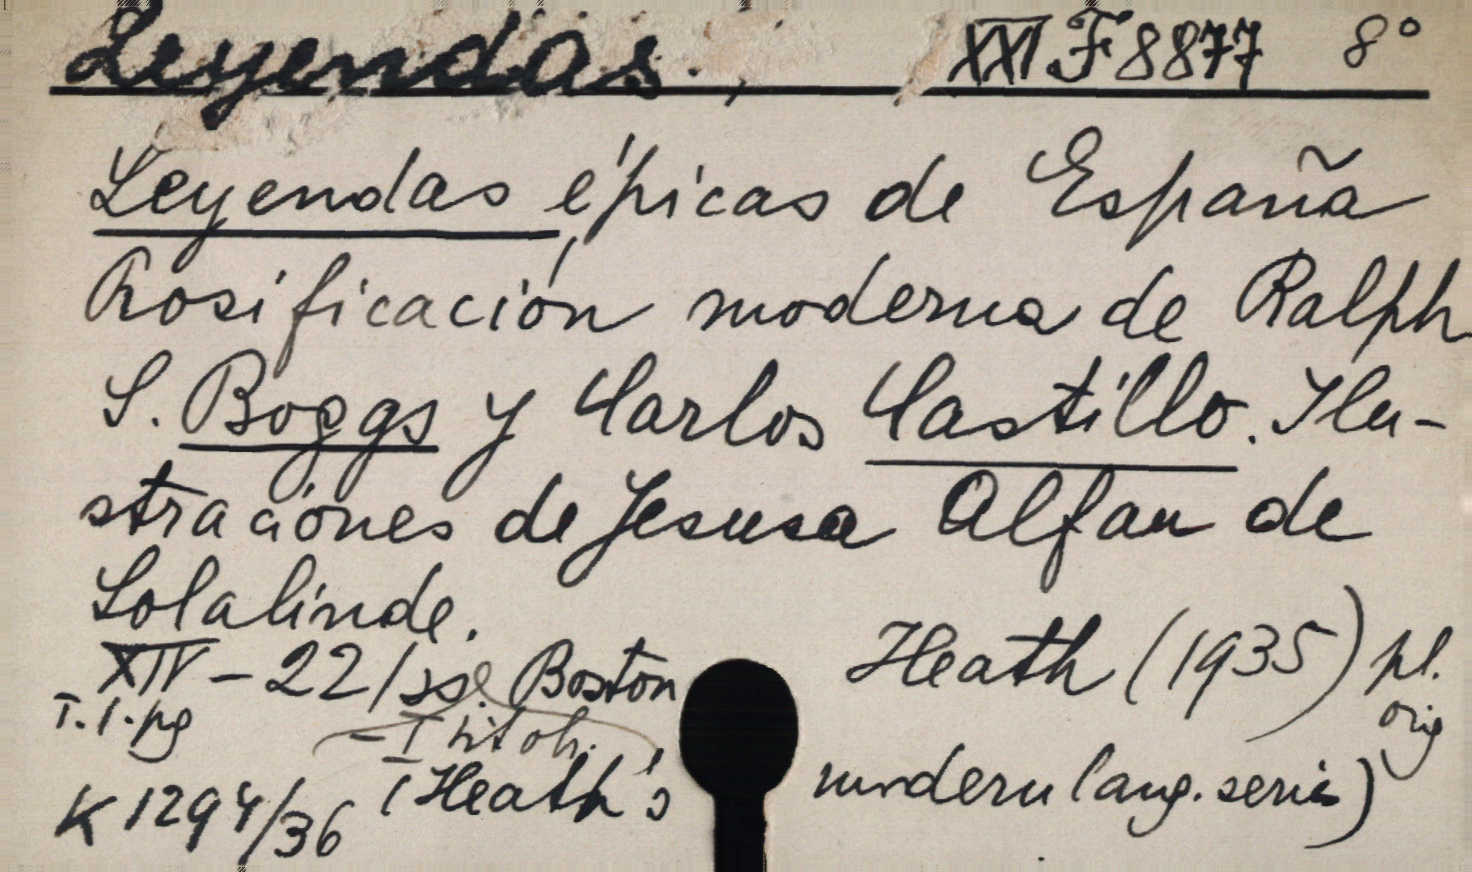 Leyendas. XXI F 8877 8°
Leyendas épicas de España
Prosificación moderna de Ralph
S. Boggs y Carlos Castillo. Ilu-
straciónes de Jesusa Alfau de
Solalinde.
XIV - 22/ Boston Heath (1935) pl.
orig
K 1294/36 (Heath's modern lang. series)